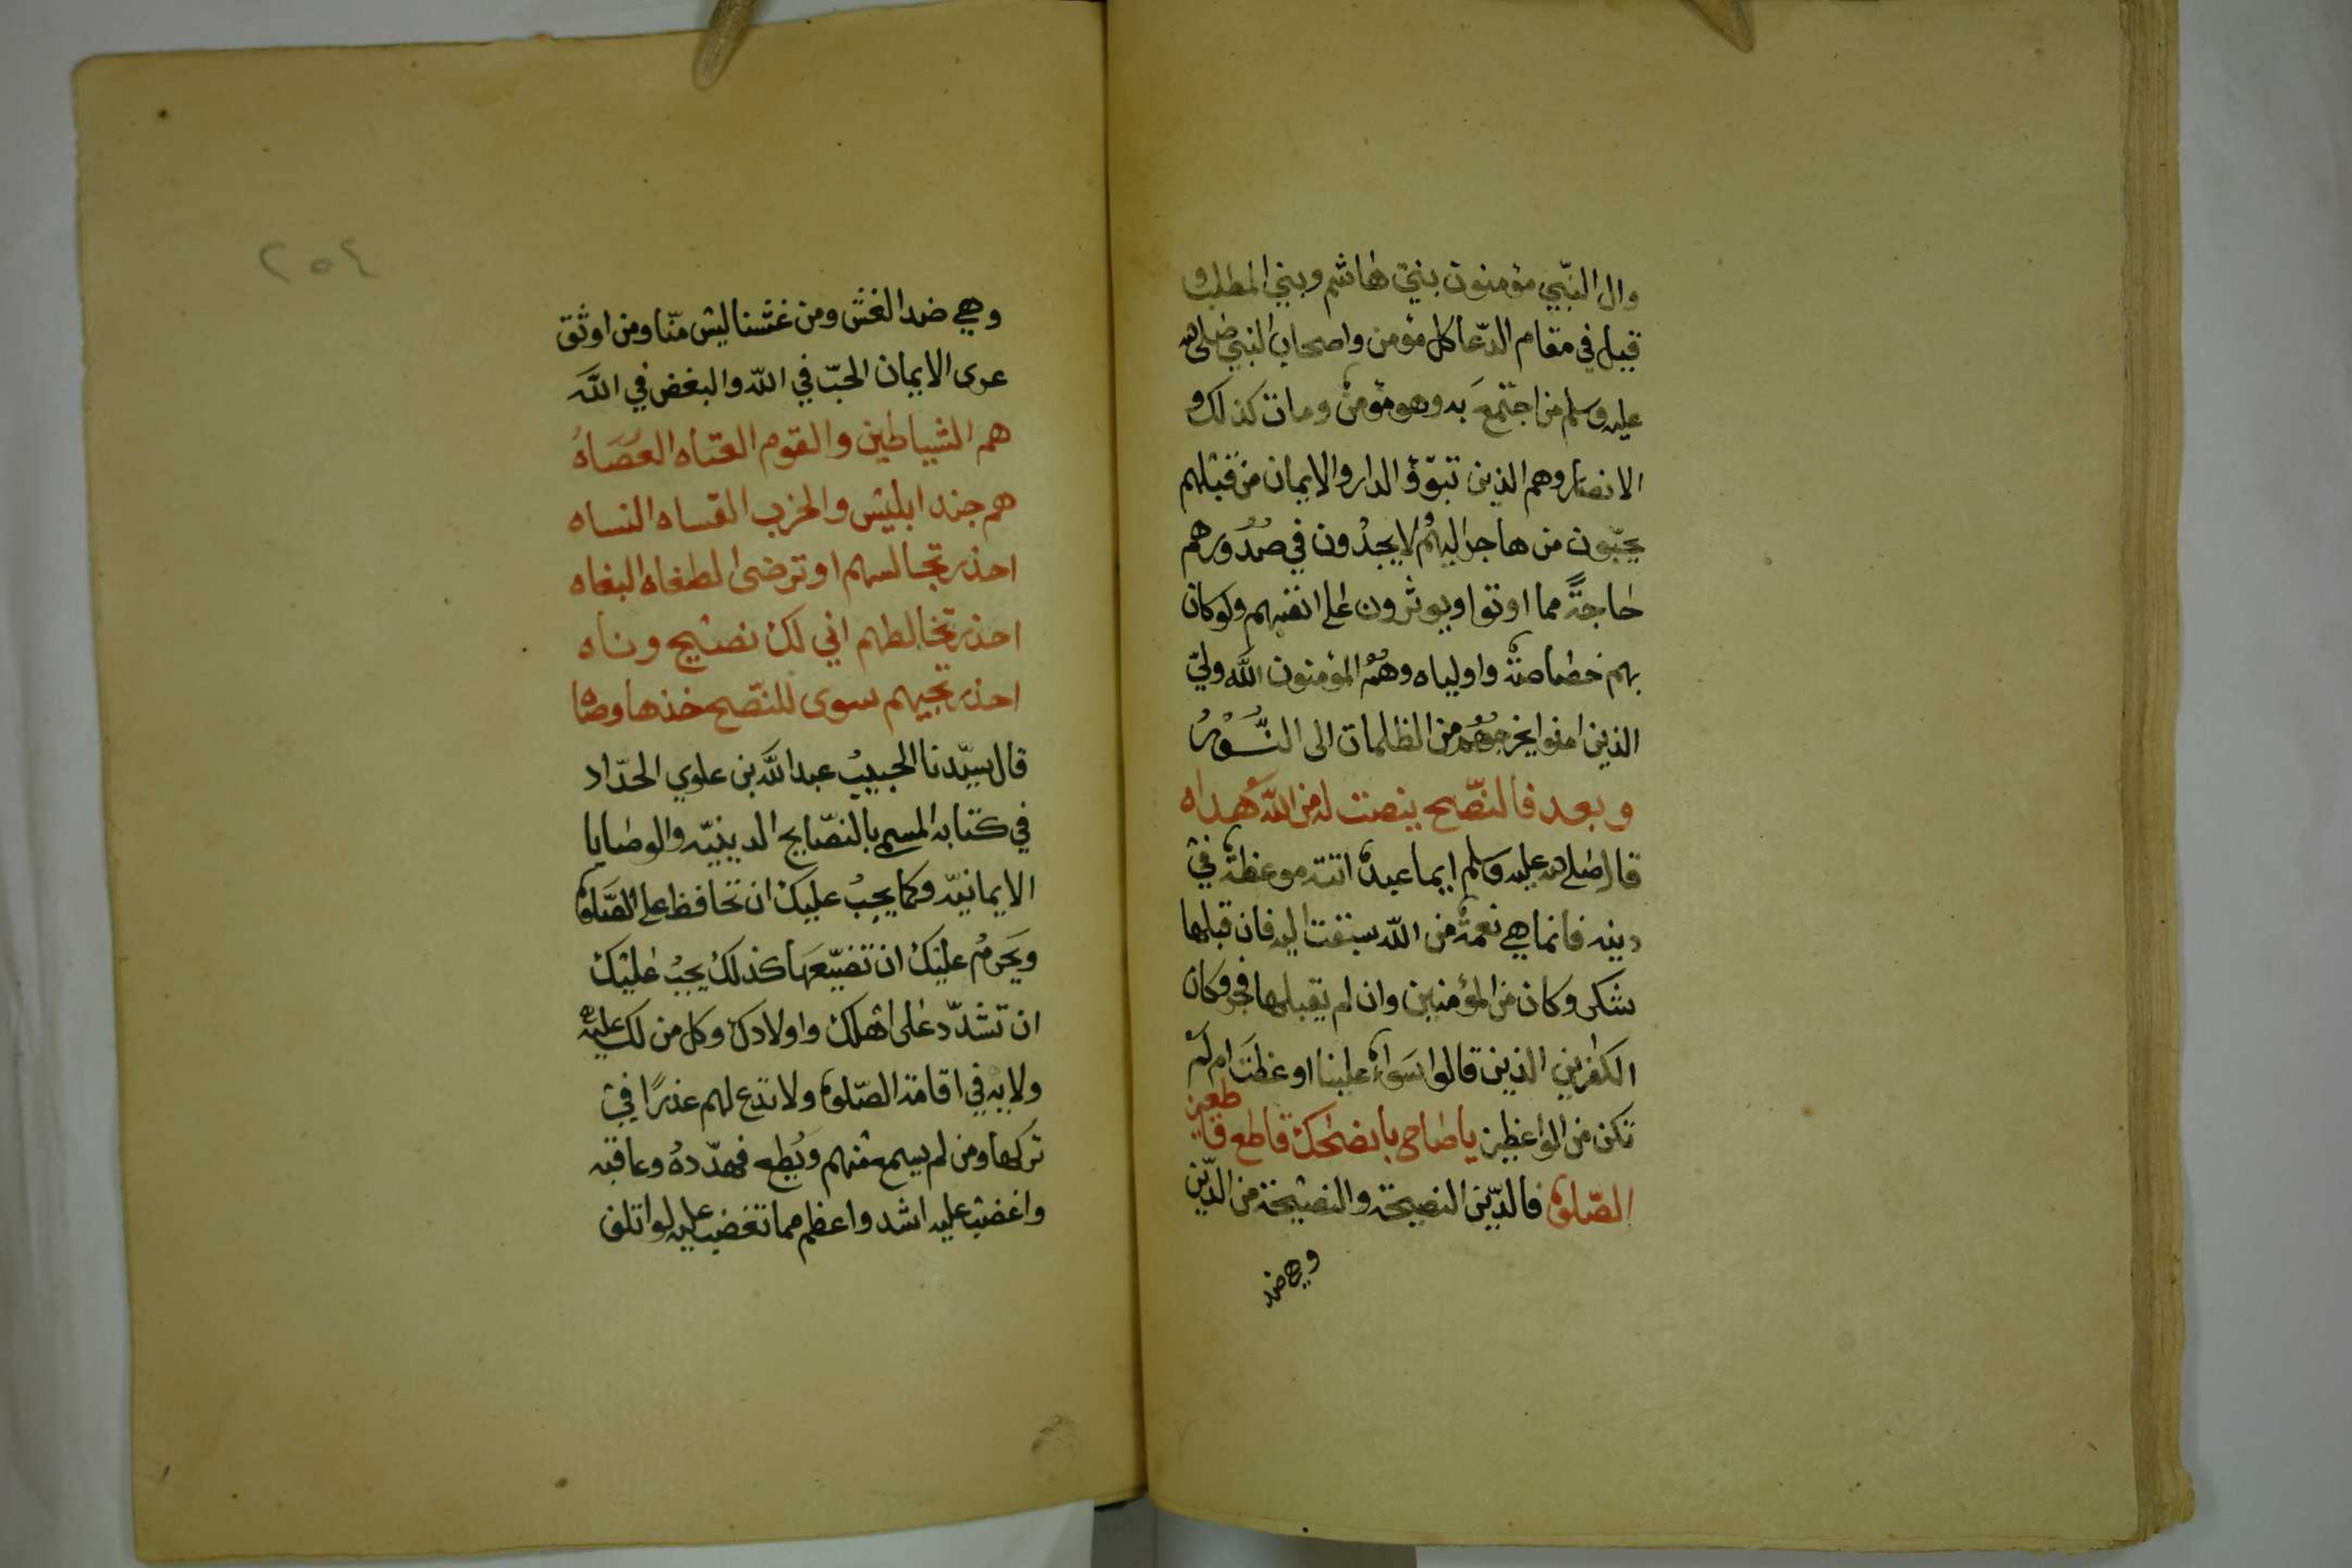 وال النبّي مؤمنون بني هاشم وبني المطلب و
قيل في مقام الدّعا كل مؤمن واصحاب النبي صلى الله
عليه وسلم من اجتمعَ به وهو مؤمنٌ ومات كذلك و
الانصار وهم الذين تبوّؤ الدار والايمان من قبلهم
يحبّون من هاجر اليهمْ ولا يجدون في صُدُورهم
حاجةً مما اوتوا ويوثرون على انفسهم ولو كان
بهم خصاصةٌ واولياه وهُمُ المؤمنون اللَّه وليّ
الذين امنوا يخرجُهُم من الظلمات الى النُّــورْ
وبعد فالنصّح ينصت له من اللَّه هداه
قال صلى الله عليه وسلم ايما عبدٌ اتته موعظةٌ في
دينه فانما هي نعمةٌ من اللّه سيقت اليه فان قبلها
شكر وكان من المؤمنين وان لم يقبلها فجر وكان
الكفرين الذين قالوا سَواءٌ علينا اوعظتَ ام لمْ
تكن من الواعظين يا صاحي بانضحك قاطع قا
طعين
الصّلوةِ فالدّين النصيحة والنصيحة من الدّين
وهي ضد
٢٥٤
وهي ضد الغشّ ومن غشنا ليس منّا ومن اوثق
عرى الايمان الحبّ في اللّه والبغض في اللَّه
هم الشياطين والقوم العتاه العُصَاهْ
هم جند ابليس والحزب القساه النساه
احذر تجالسهم او ترضى الطغاه البغاه
احذر تخالطهم اني لك نصيح وناه
احذر تجيهم سوى للنّصح خذها وصاه
قال سيّدنا الحبيبْ عبد اللَّه بن علوي الحدّاد
في كتابه المسمى بالنصّايح الدينيّه والوصايا
الايمانيّه وكما يجبُ عليك ان تحافظ على الصَّلوة
ويَحرمُ عليك ان تضيّعَها كذلك يجبُ عليْك
ان تشدّد على اهلك واولادك وكل من لك عليه
ولايه في اقامة الصّلوةِ ولا تدَع لهم عذرًا في
تركها ومن لم يسمع منهم ويُطع فهدّدهُ وعاقبه
واغضب عليه اشد واعظم مما تغضب عليه لو اتلف